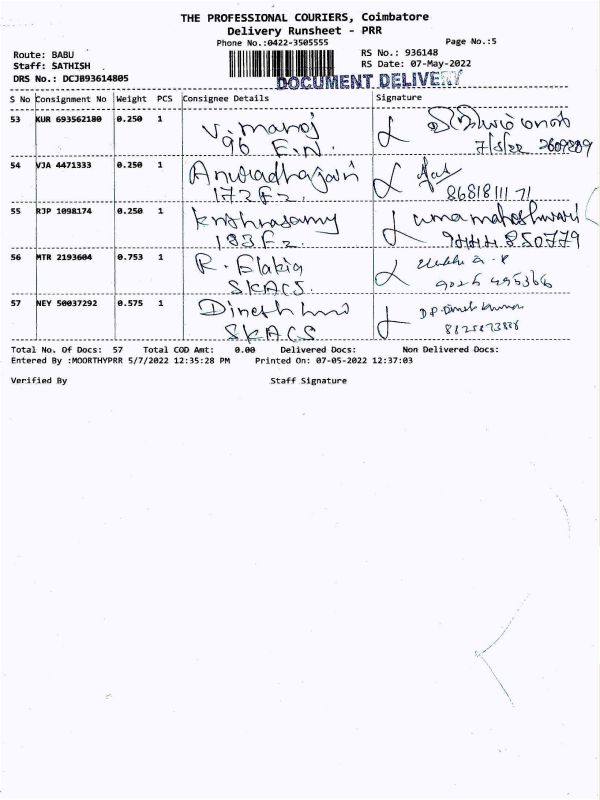 THE PROFESSIONAL COURIERS, Coimbatore
Delivery Runsheet - PRR
Phone No.:0422-3505555 Page No.:5
Route: BABU RS No.: 936148
Staff: SATHISH RS Date: 07-May-2022
DRS No.: DCJB93614805 DOCUMENT DELIVERY
S No Consignment No Weight PCS Consignee Details Signature
53 KUR 693562180 0.250 1 V. manoj
96 F.N. 7/5/22
54 VJA 4471333 0.250 1 Anuradharajan
172 F2. 86818111 71
55 RJP 1098174 0.250 1 krishnasamy umamaheshwari
183 F2. 9444 850779
56 MTR 2193604 0.753 1 R. Elakia
SKACS. 9025 495366
57 NEY 50037292 0.575 1 Dinesh D.P. Dinesh kumar
SKACS
Total No. Of Docs: 57 Total COD Amt: 0.00 Delivered Docs: Non Delivered Docs:
Entered By :MOORTHYPRR 5/7/2022 12:35:28 PM Printed On: 07-05-2022 12:37:03
Verified By Staff Signature